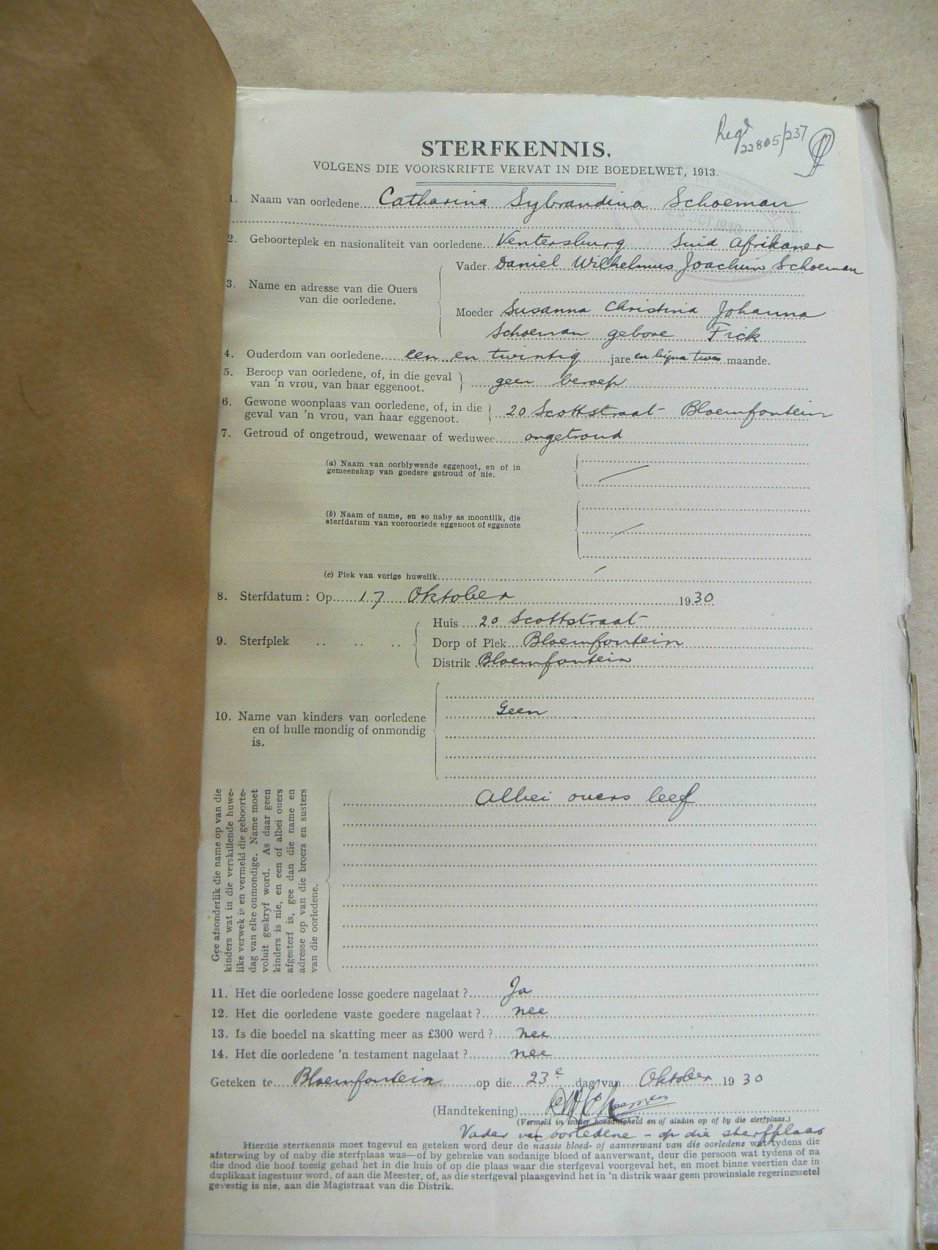 Regr
22805/237
STERFKENNIS.
VOLGENS DIE VOORSKRIFTE VERVAT IN DIE BOEDELWET, 1913.
1. Naam van oorledene Catharina Sybrandina Schoeman
2. Geboorteplek en nasionaliteit van oorledene Ventersburg Suid Afrikaner
3. Name en adresse van die Ouers van die oorledene.
Vader Daniel Wilhelmus Joachim Schoeman
Moeder Susanna Christina Johanna
Schoeman gebore Fick
4. Ouderdom van oorledene een en twintig jare en byna twee maande.
5. Beroep van oorledene, of, in die geval
van 'n vrou, van haar eggenoot. geen beroep
6. Gewone woonplaas van oorledene, of, in die
geval van 'n vrou, van haar eggenoot. 20 Scottstraat - Bloemfontein
7. Getroud of ongetroud, wewenaar of weduwee ongetroud
(a) Naam van oorblywende eggenoot, en of in
gemeenskap van goedere getroud of nie.
(b) Naam of name, en so naby as moontlik, die
sterfdatum van vooroorlede eggenoot of eggenote
(c) Plek van vorige huwelik
8. Sterfdatum : Op 17 Oktober 1930
9. Sterfplek
Huis 20 Scottstraat
Dorp of Plek Bloemfontein
Distrik Bloemfontein
10. Name van kinders van oorledene
en of hulle mondig of onmondig
is.
Geen
Gee afsonderlik die name op van die
kinders wat in die verskillende huwe-
like verwek is en vermeld die geboorte-
dag van elke onmondige. Name moet
voluit geskryf word. As daar geen
kinders is nie, en een of albei ouers
afgesterf is, gee dan die name en
adresse op van die broers en susters
van die oorledene.
Albei ouers leef
11. Het die oorledene losse goedere nagelaat ? Ja
12. Het die oorledene vaste goedere nagelaat ? nee
13. Is die boedel na skatting meer as £300 werd ? nee
14. Het die oorledene 'n testament nagelaat ? nee
Geteken te Bloemfontein op die 23e dag van Oktober 1930
(Handtekening)
(Vermeld in hoedanigheid en of aisdan op of by die sterfplaas.)
Vader van oorledene - op die sterfplaas
Hierdie sterfkennis moet ingevul en geteken word deur de naaste bloed- of aanverwant van die oorledene wat tydens die
afsterwing by of naby die sterfplaas was—of by gebreke van sodanige bloed of aanverwant, deur die persoon wat tydens of na
die dood die hoof toesig gehad het in die huis of op die plaas waar die sterfgeval voorgeval het, en moet binne veertien dae in
duplikaat ingestuur word, of aan die Meester, of, as die sterfgeval plaasgevind het in 'n distrik waar geen prowinsiale regeringssetel
gevestig is nie, aan die Magistraat van die Distrik.